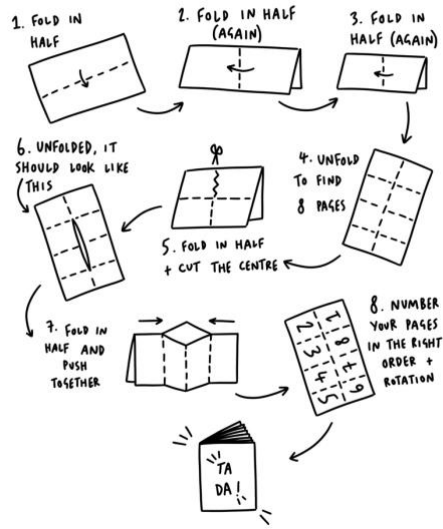 1. FOLD IN
HALF
2. FOLD IN HALF
(AGAIN)
3. FOLD IN
HALF (AGAIN)
4. UNFOLD
TO FIND
8 PAGES
5. FOLD IN HALF
+ CUT THE CENTRE
6. UNFOLDED, IT
SHOULD LOOK LIKE
THIS
7. FOLD IN
HALF AND
PUSH
TOGETHER
8. NUMBER
YOUR PAGES
IN THE RIGHT
ORDER +
ROTATION
2 1
3 8
4 7
5 6
TA
DA!